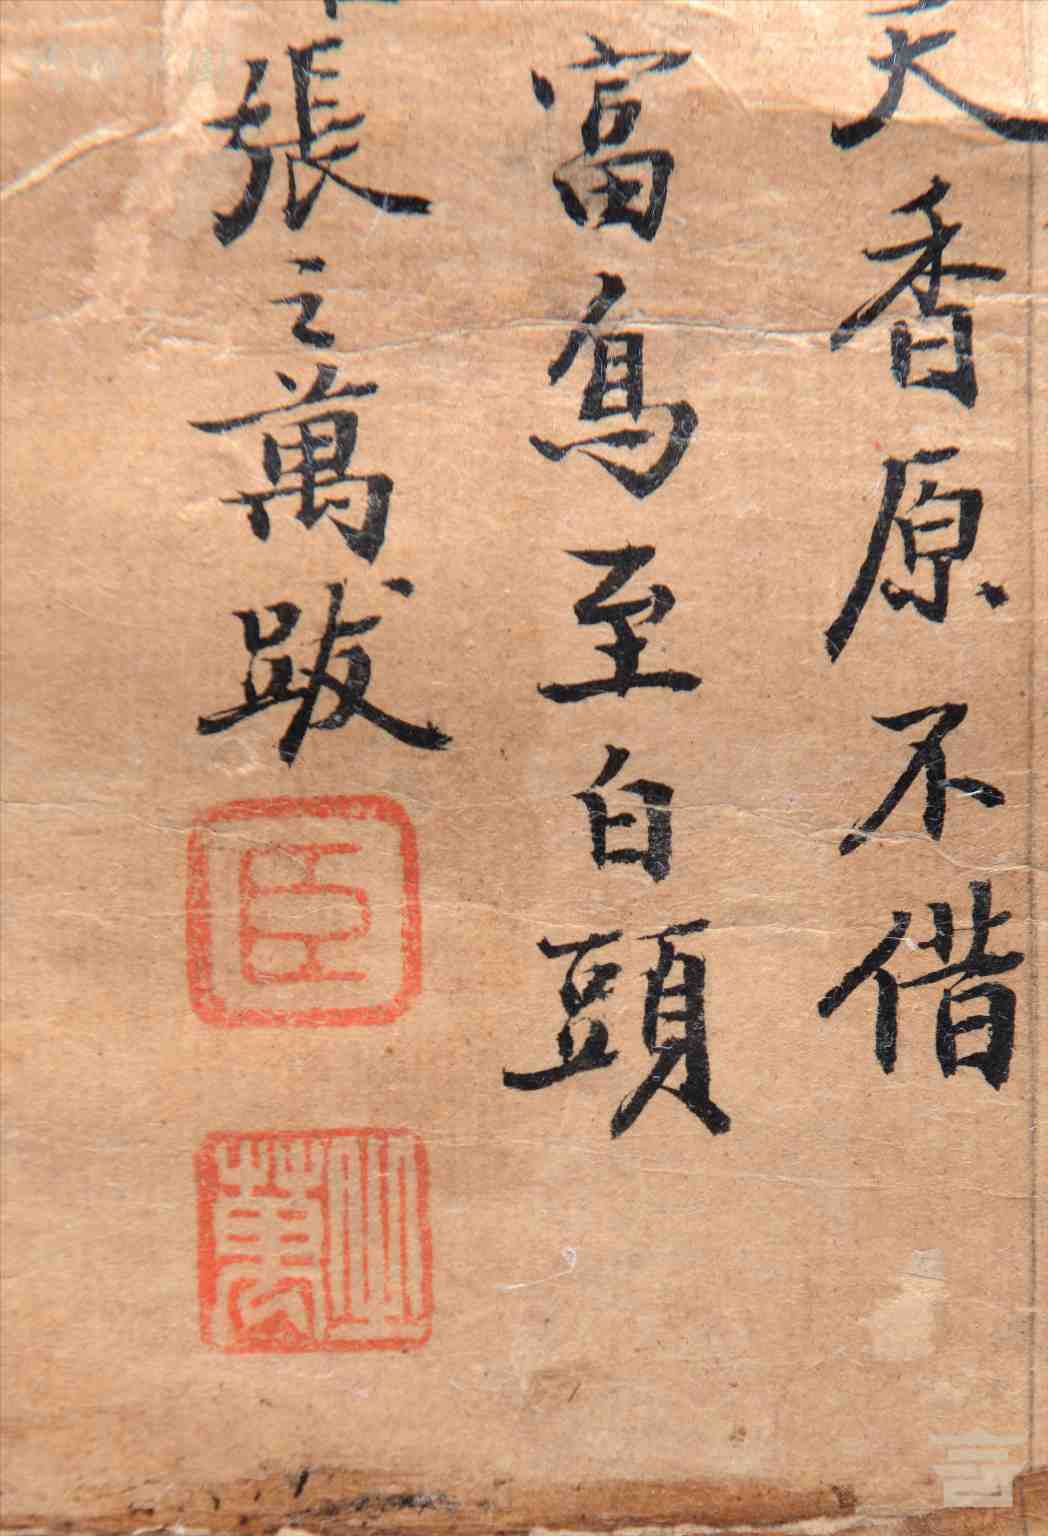 天香原不借
富鳥至白頭
張之萬跋
臣
之萬